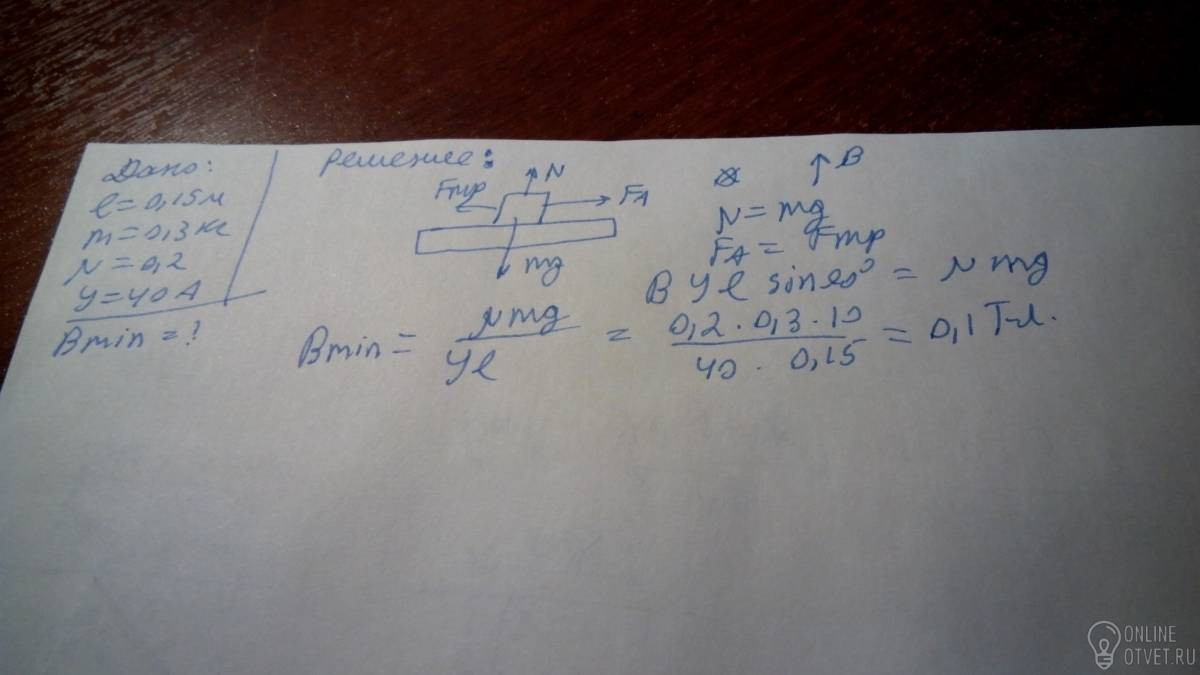 Дано:
l = 0,15 м
m = 0,3 кг
μ = 0,2
I = 40 А
Bmin = ?
Решение:
N
Fтр
FA
mg
B
N = mg
FA = Fтр
B I l sin 90° = μ mg
Bmin = μmg / Il = 0,2 · 0,3 · 10 / 40 · 0,15 = 0,1 Тл.
ONLINE
OTVET.RU